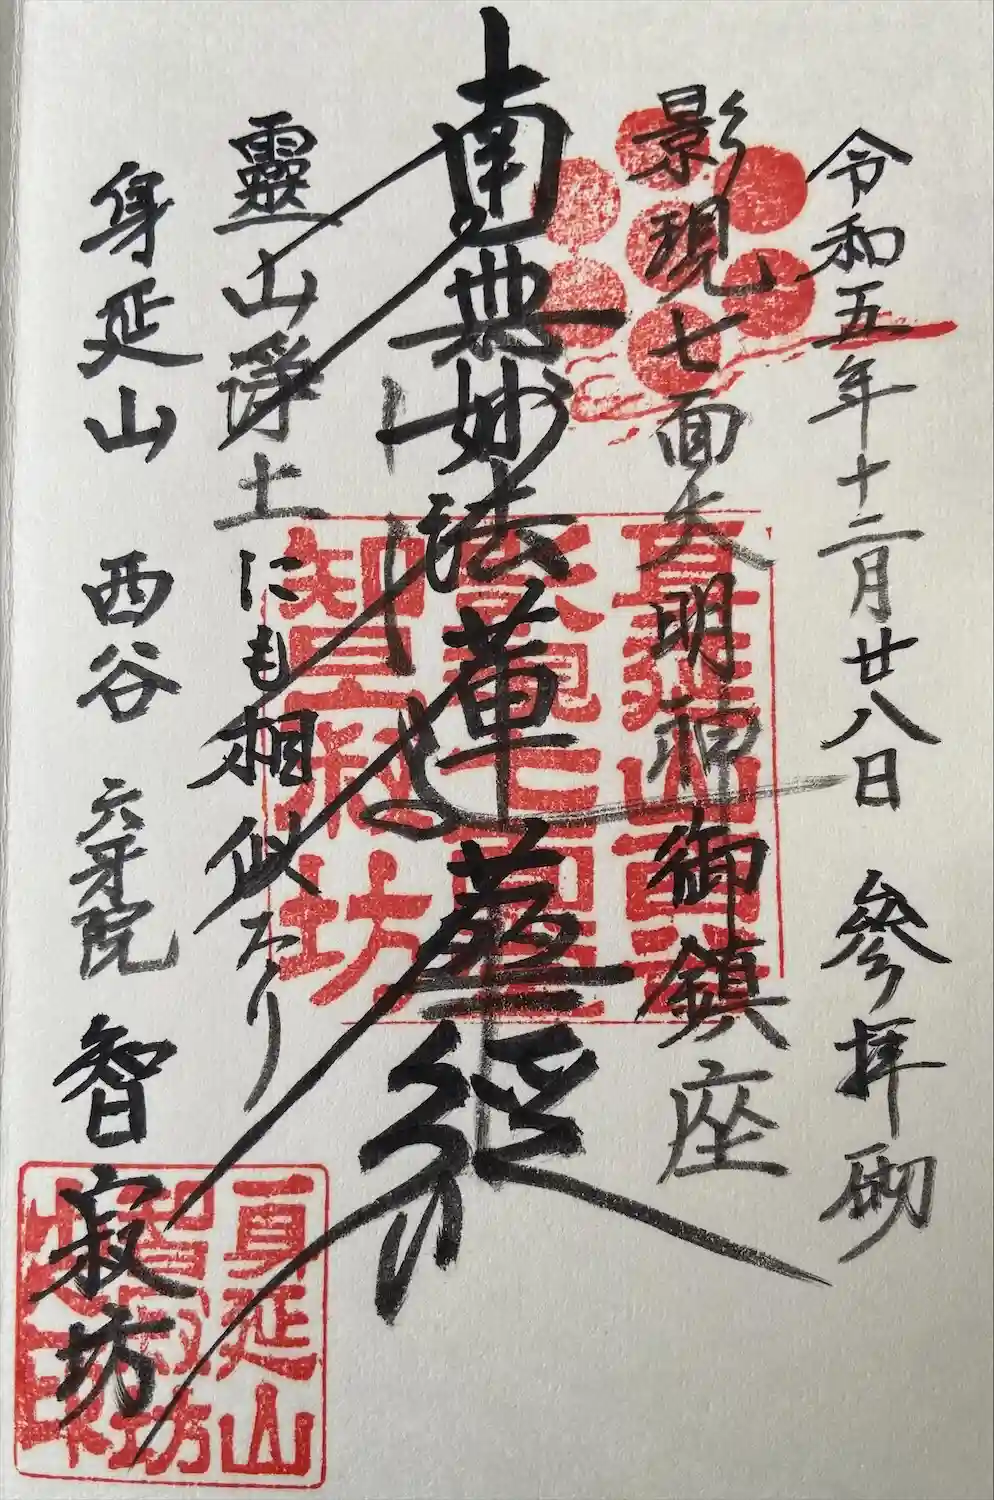 令和五年十二月廿八日 參拝砌
影現七面大明神御鎮座
南無妙法蓮華経
靈山浄土にも相似たり
身延山 西谷 六牙院 智寂坊
身延山西谷
影現七面
智寂坊
身延山
智寂坊